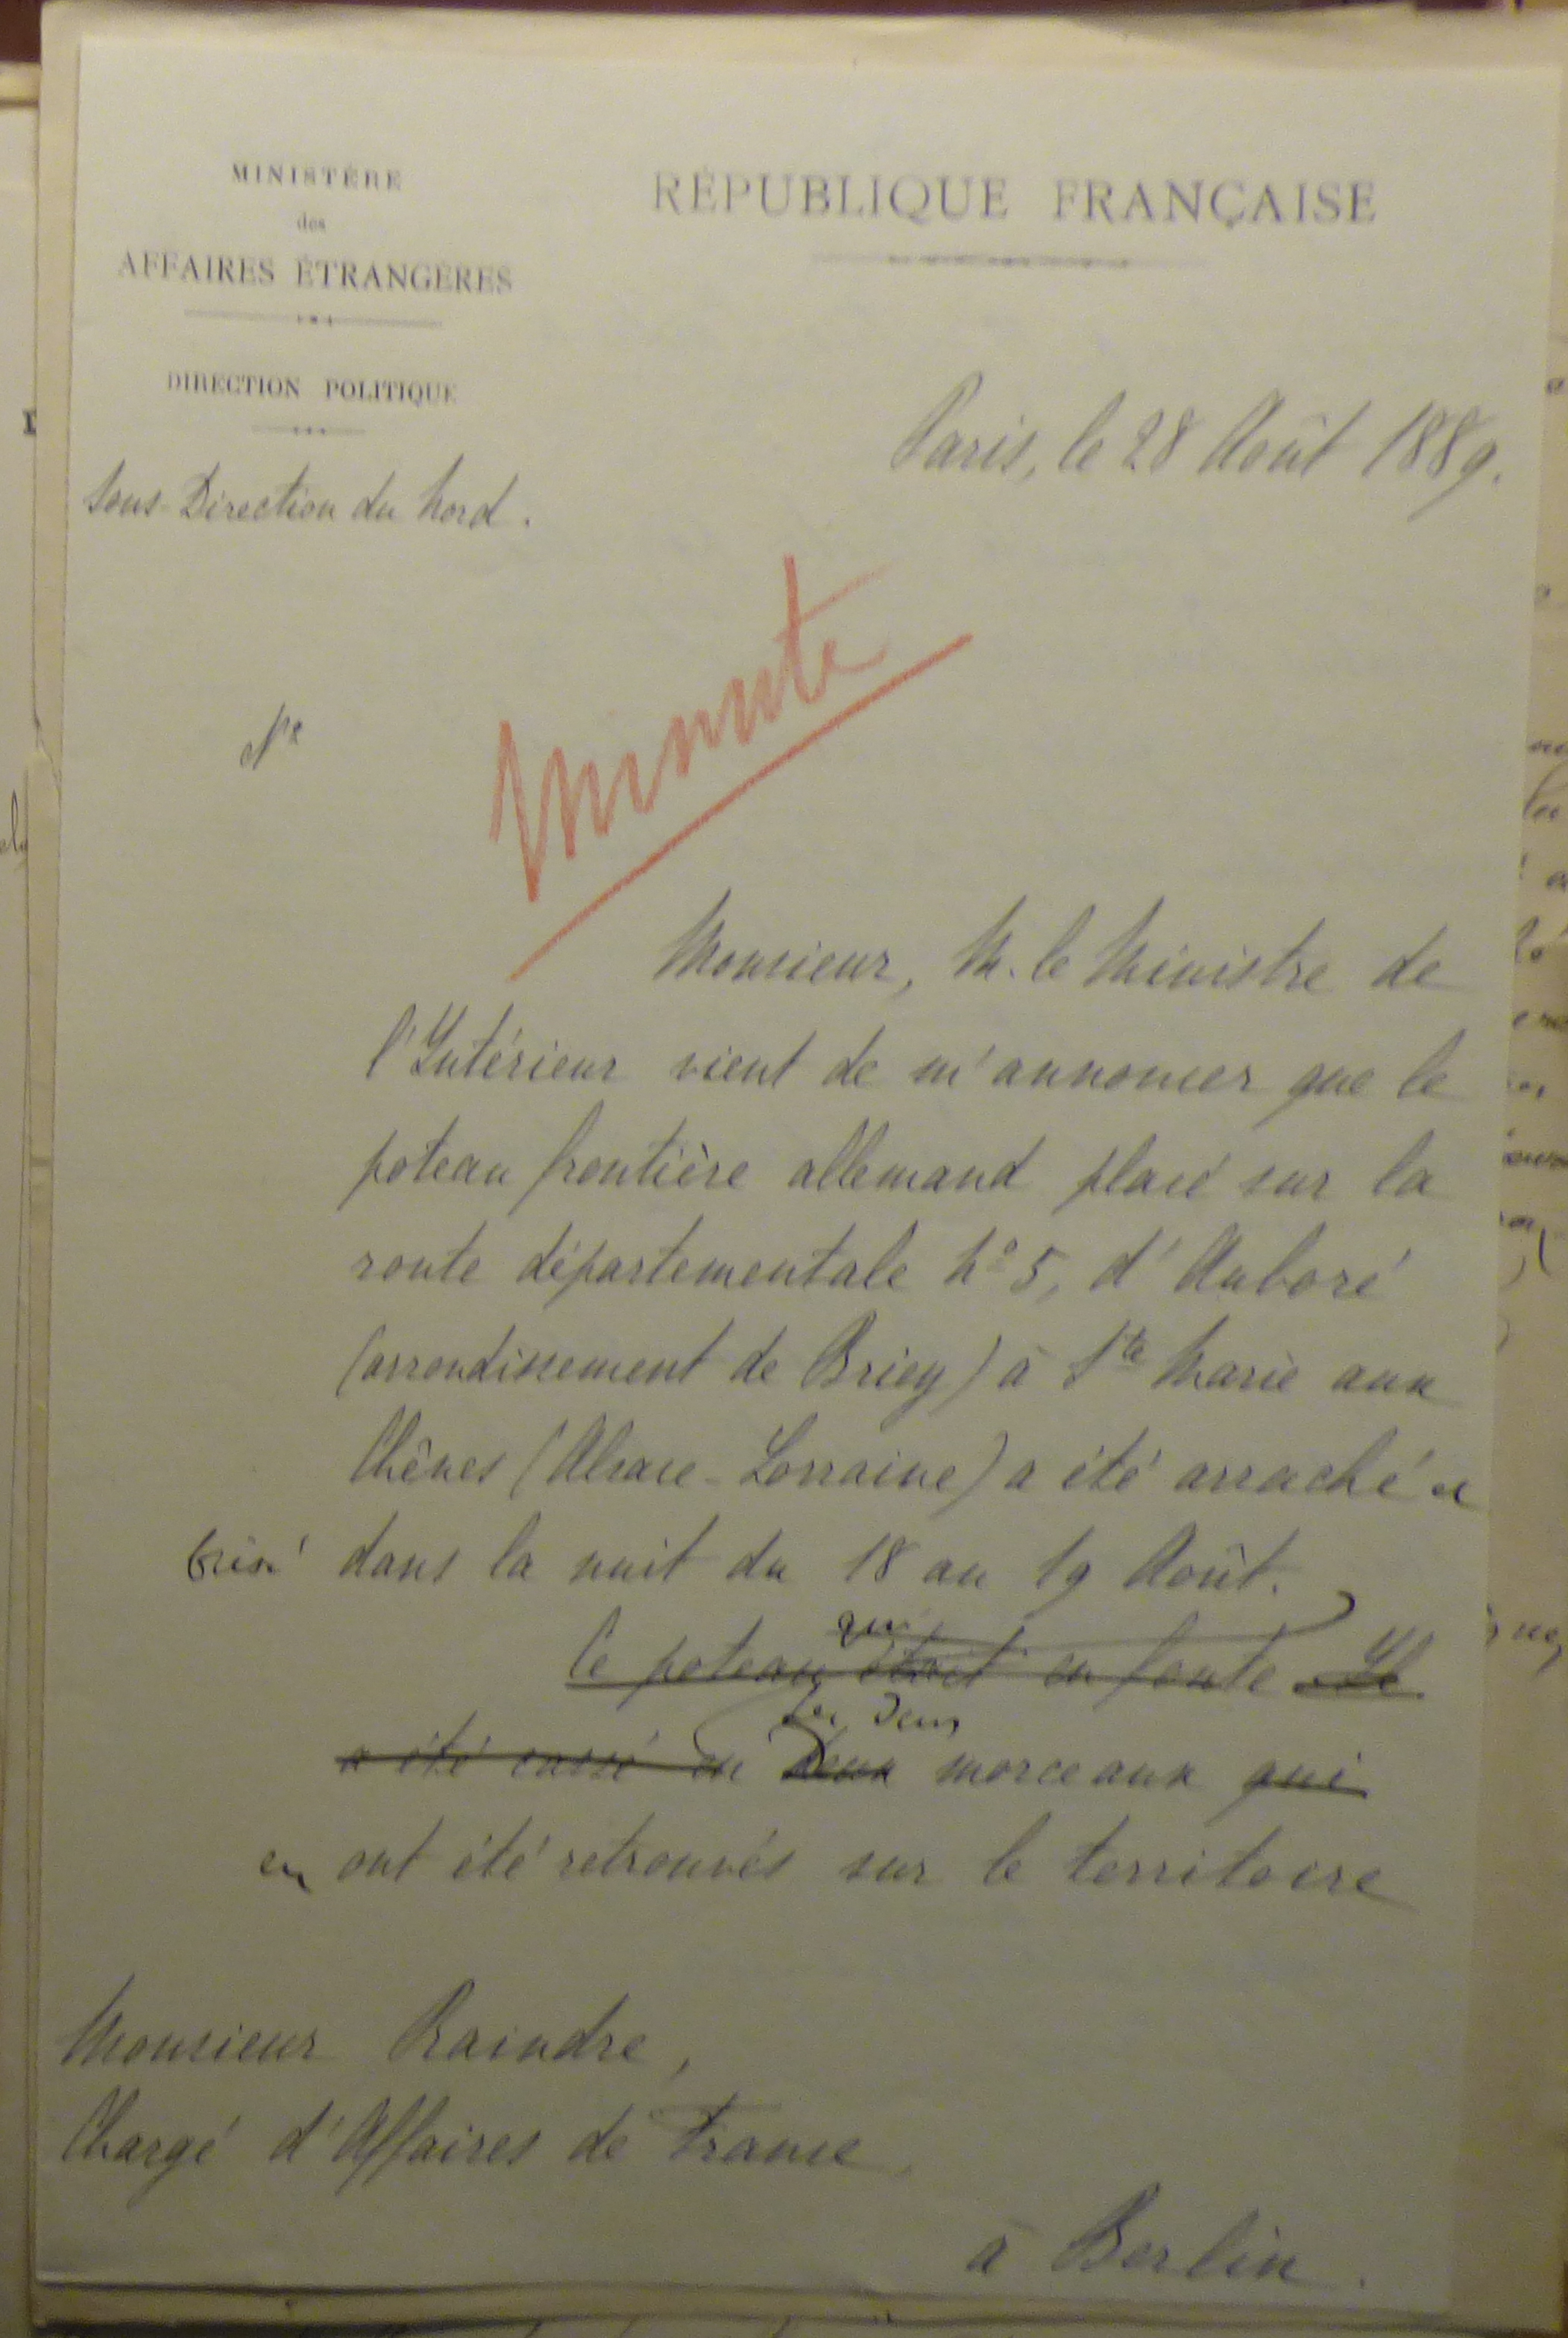 MINISTÈRE
des
AFFAIRES ÉTRANGÈRES
DIRECTION POLITIQUE
Sous-Direction du Nord.
RÉPUBLIQUE FRANÇAISE
Paris, le 28 Août 1889.
Minute
Monsieur, M. le Ministre de
l'Intérieur vient de m'annoncer que le
poteau frontière allemand placé sur la
route départementale No 5, d'Auboré
(arrondissement de Briey) à Ste Marie aux
Chênes (Alsace-Lorraine) a été arraché et
brisé dans la nuit du 18 au 19 Août.
qui
Ce poteau était en fonte. Il
Les deux
a été cassé en deux morceaux qui
en ont été retrouvés sur le territoire
Monsieur Raindre,
Chargé d'Affaires de France
à Berlin.